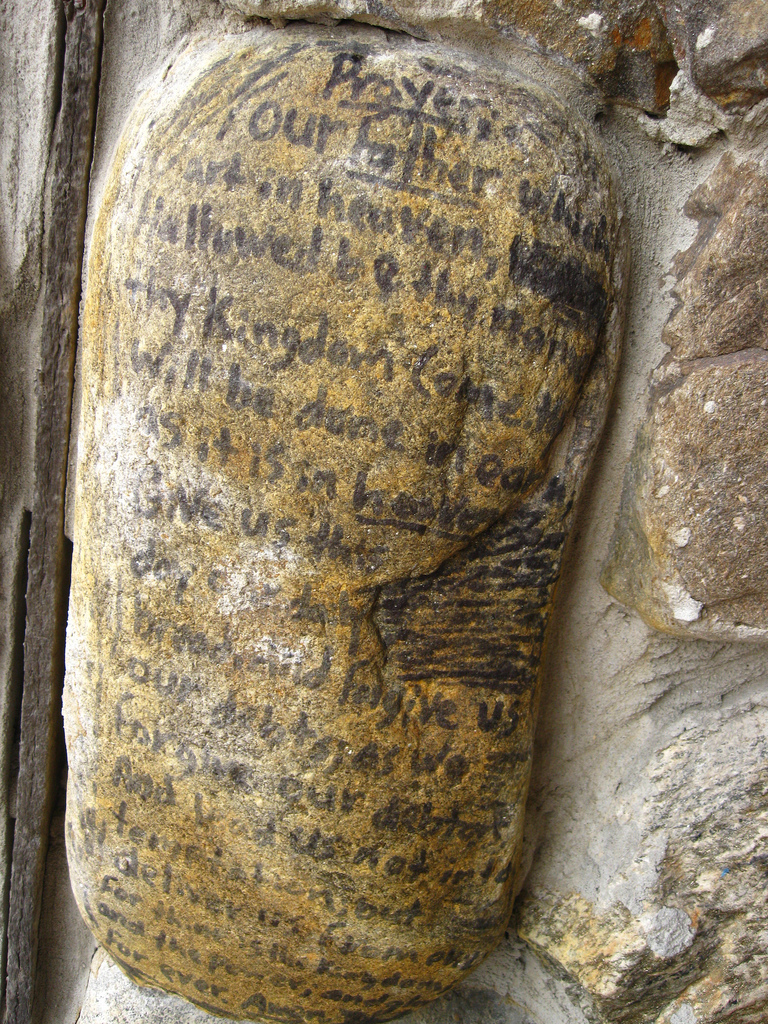 Prayer
Our father which
art in heaven,
Hallowed be thy Name
thy Kingdom Come, th
Will be done in earth
as it is in heaven
Give us this
day our daily
bread, and forgive us
our debts, as we
forgive our debtors
And lead us not into
temptation, but
deliver us from
For thine is the Kingdom
and the power, and the
for ever Amen